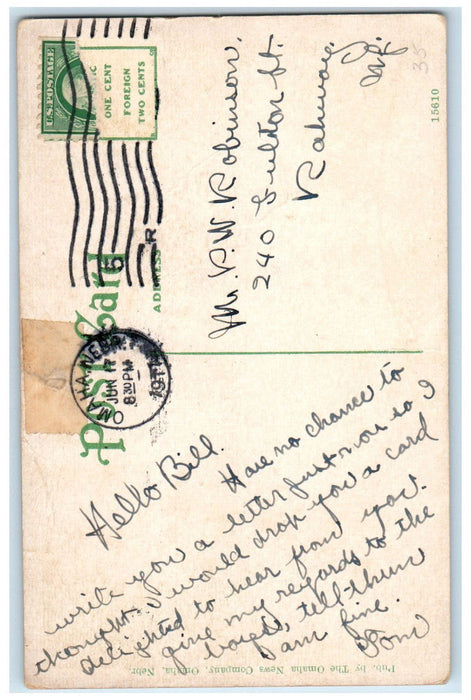 Post Card
U.S. POSTAGE
ONE CENT
FOREIGN
TWO CENTS
ADDRESS
OMAHA, NEBR.
JUN 17
8 30 PM
5
Hello Bill
Have no chance to
write you a letter just now so I
thought I would drop you a card
delighted to hear from you.
give my regards to the
boys, tell thum
I am fine.
Tom
Mr. P. W. Robinson.
240 Fulton St.
Rahway.
N.J.
35
15610
Pub. by The Omaha News Company, Omaha, Nebr.